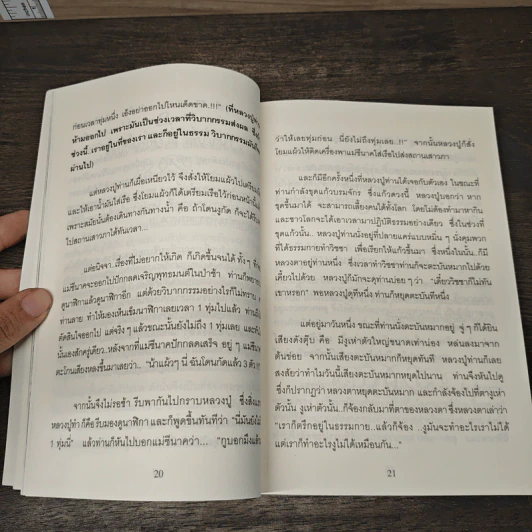 ก่อนเวลาทุ่มหนึ่ง เอ็งอย่าออกไปไหนเด็ดขาด..!!!" (ที่หลวงปู่
ห้ามออกไป เพราะมันเป็นช่วงเวลาที่วิบากกรรมส่งผล
ช่วงนี้..เราอยู่ในที่ของเรา และก็อยู่ในธรรม วิบากกรรมมัน
ผ่านไป)
แต่หลวงปู่ท่านก็เผื่อเหนียวไว้ จึงสั่งให้โยมแม้วไปเตรียม
และให้เอาน้ำมันใส่เรือ ซึ่งโยมแม้วก็ได้เตรียมเรือไว้ก่อนหน้านี้
เพราะสมัยนั้นต้องเดินทางกันทางน้ำ คือ ถ้าโดนงูกัด ก็จะได้
ไปสถานเสาวภาได้ทันเวลา...
แต่อนิจจา..เรื่องที่ไม่อยากให้เกิด ก็เกิดขึ้นจนได้ ทั้งๆ ที่
แม่ชีนาคจะออกไปปักกลดเจริญพุทธมนต์ในป่าช้า ท่านก็
ดูนาฬิกาแล้วดูนาฬิกาอีก แต่ด้วยวิบากกรรมอย่างไรก็ไม่ทราบ
ท่านลาย ทำให้มองเห็นเข็มนาฬิกาเลยเวลา 1 ทุ่มไปแล้ว
ตัดสินใจออกไป แต่จริงๆ แล้วขณะนั้นยังไม่ถึง 1 ทุ่มเลย และ
นั่นเองสักครู่เดียว..หลังจากที่แม่ชีนาคปักกลดเสร็จ อยู่ๆ แม่ชี
ตะโกนเสียงหลงขึ้นมาเลยว่า... "น้าแม้วๆ นี่ ฉันโดนกัดแล้ว 3 ตัว
จากนั้นจึงไม่รอช้า รีบพากันไปกราบหลวงปู่ ซึ่งสิ่ง
หลวงปู่ทำ ก็คือ รีบมองดูนาฬิกา และก็พูดขึ้นทันทีว่า "นี่มันยัง
1 ทุ่มนี่" แล้วท่านก็หันไปบอกแม่ชีนาคว่า... "กูบอกมึงแล้ว
20
ว่าให้เลยทุ่มก่อน นี่ยังไม่ถึงทุ่มเลย..!!" จากนั้นหลวงปู่ก็สั่ง
โยมแม้วให้ติดเครื่องพาแม่ชีนาคใส่เรือไปส่งสถานเสาวภา
และก็มีอีกครั้งหนึ่งที่หลวงปู่ท่านได้เจอกับตัวเอง ในขณะที่
ท่านกำลังขุดแก้วบรมจักร ซึ่งแก้วดวงนี้ หลวงปู่บอกว่า หาก
ขุดขึ้นมาได้ จะสามารถเลี้ยงคนได้ทั้งโลก โดยไม่ต้องทำมาหากิน
และชาวโลกจะได้เอาเวลามาปฏิบัติธรรมอย่างเดียว ซึ่งในช่วงที่
ขุดแก้วนั้น.. หลวงปู่ท่านนั่งอยู่ที่ปลายแคร่แบบหมิ่นๆ นั่งคุมพวก
ที่ได้ธรรมกายทำวิชชา เพื่อเรียกให้แก้วขึ้นมา ซึ่งหนึ่งในนั้น..ก็มี
หลวงตาอยู่ท่านหนึ่ง ซึ่งเวลาทำวิชชาท่านก็จะตะบันหมากไปด้วย
เคี้ยวไปด้วย หลวงปู่ก็มักจะดุท่านบ่อยๆ ว่า "เดี๋ยววิชชาก็ไม่ทัน
เขาหรอก" พอหลวงปู่ดุทีหนึ่ง ท่านก็หยุดตะบันทีหนึ่ง
แต่อยู่มาวันหนึ่ง ขณะที่ท่านนั่งตะบันหมากอยู่ จู่ๆ ก็ได้ยิน
เสียงดังตุ๊บ คือ มีงูเห่าตัวใหญ่ขนาดเท่าน่อง หล่นลงมาจาก
ต้นข่อย จากนั้นเสียงตะบันหมากก็หยุดทันที หลวงปู่ท่านก็เลย
สงสัยว่าทำไมวันนี้เสียงตะบันหมากหยุดไปนาน ท่านจึงหันไปดู
ซึ่งก็ปรากฏว่า หลวงตาหยุดตะบันหมาก และกำลังจ้องไปที่ตางูเห่า
ตัวนั้น งูเห่าตัวนั้น..ก็จ้องกลับมาที่ตาของหลวงตา ซึ่งหลวงตาเล่าว่า
"เราก็ตรึกอยู่ในธรรมกาย..แล้วก็จ้อง ..งูมันจะทำอะไรเราไม่ได้
แต่เราก็ทำอะไรงูไม่ได้เหมือนกัน..."
21